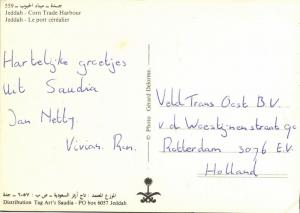 559 – جدة – ميناء الحبوب
Jeddah - Corn Trade Harbour
Jeddah - Le port céréalier
Hartelijke groetjes
uit Saudia
Jan Netty.
Vivian. Ron.
© Photo Gérard Delorme.
VeldTrans Oost B.V.
v.d. Woestijnenstraat 90
Rotterdam 3076 E.V.
Holland
Distribution Tag Art's Saudia - PO box 6057 Jeddah